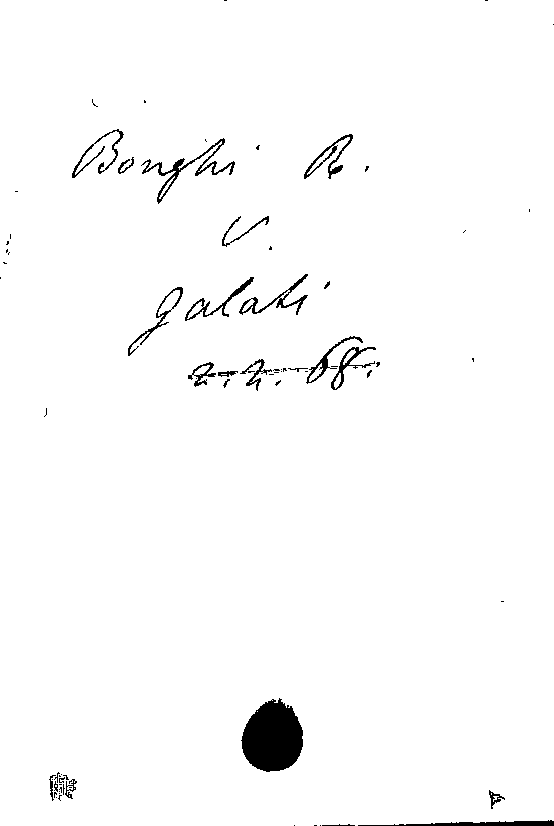 Bonghi R.
v.
Galati
2.2. 68.